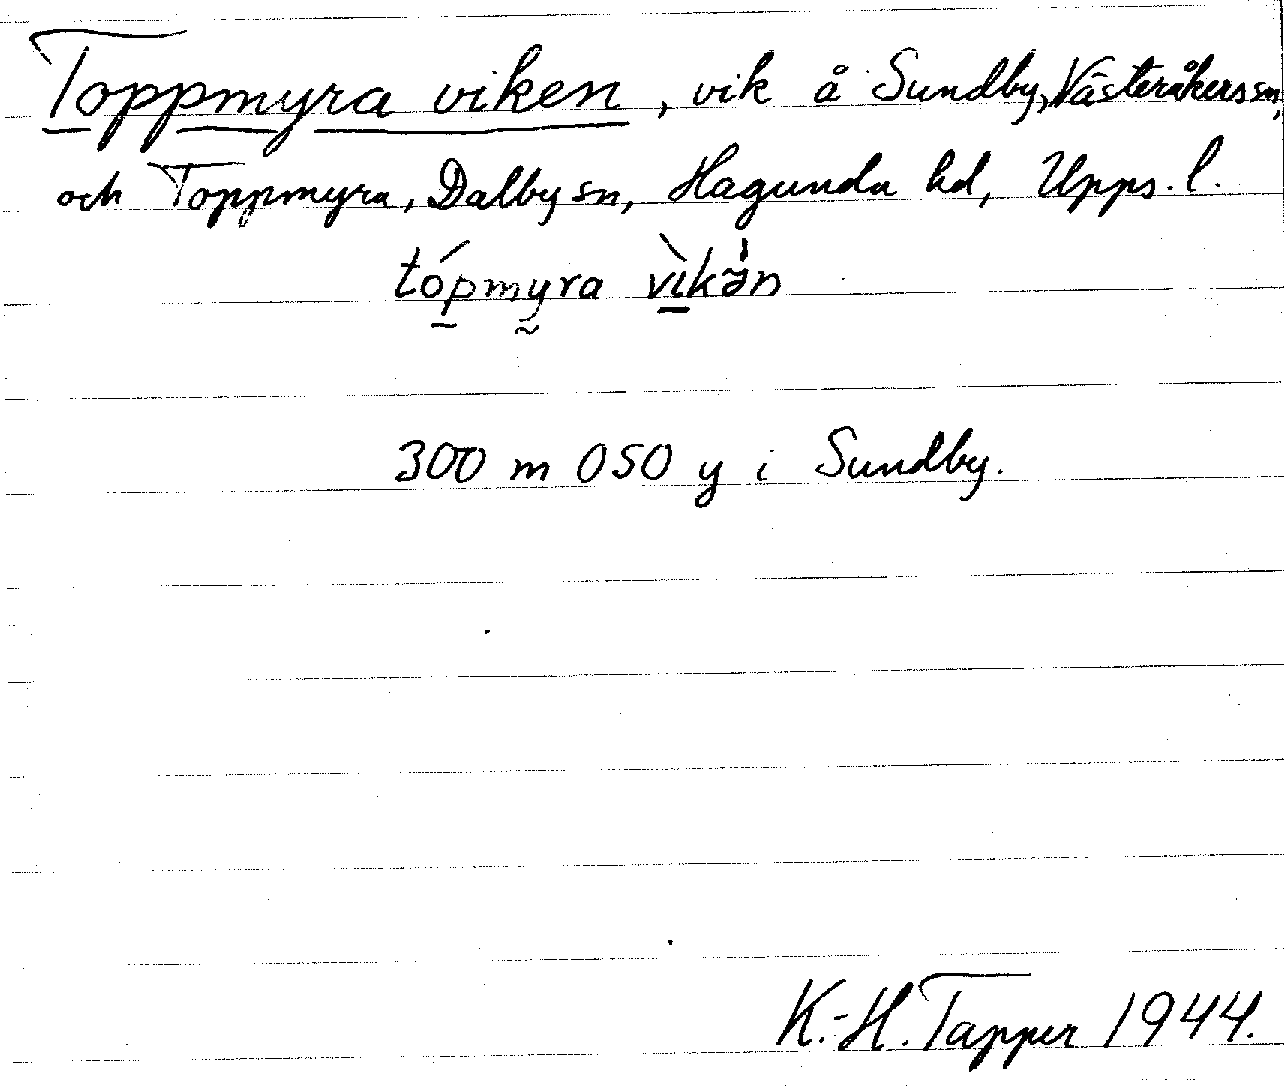 Toppmyra viken, vik å Sundby, Västeråkers sn,
och Toppmyra, Dalby sn, Hagunda hd, Upps. l.
tópmyra vìkən
300 m OSO y i Sundby.
K.-H. Tapper 1944.